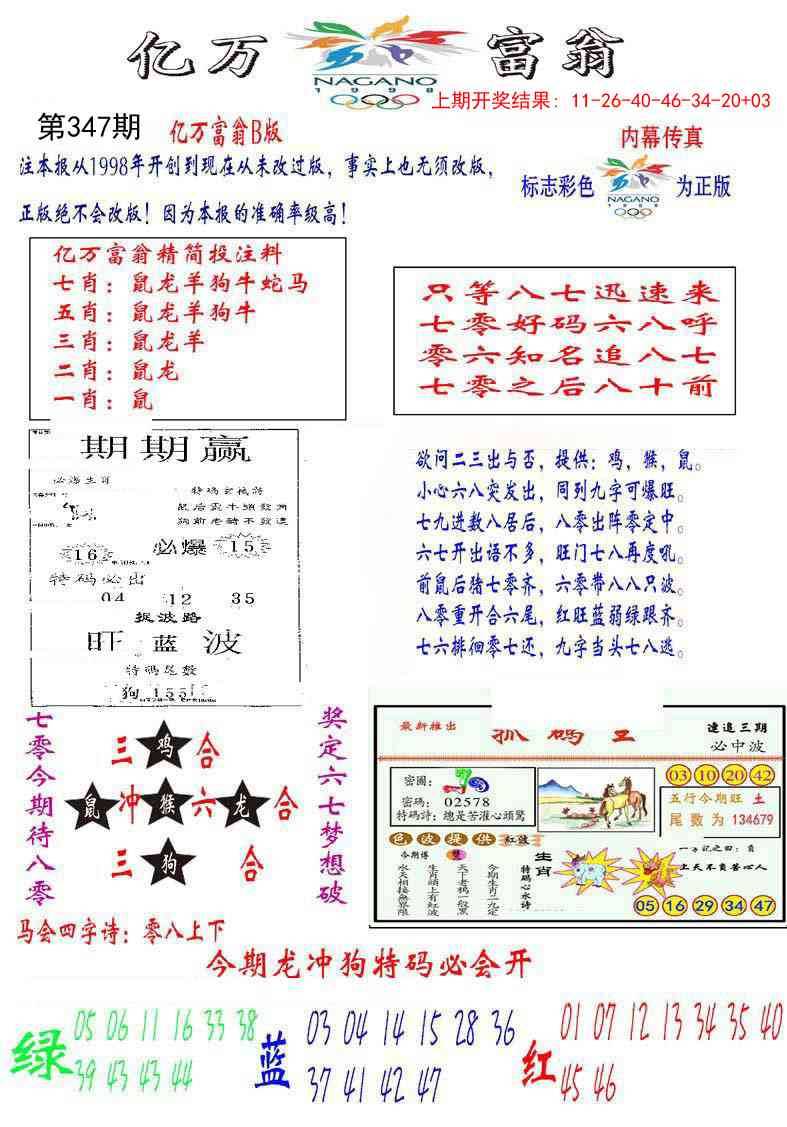 亿万富翁
NAGANO
1998
上期开奖结果：11-26-40-46-34-20+03
第347期
亿万富翁B版
内幕传真
注本报从1998年开创到现在从未改过版，事实上也无须改版，
正版绝不会改版！因为本报的准确率级高！
标志彩色
NAGANO
1998
为正版
亿万富翁精简投注料
七肖：鼠龙羊狗牛蛇马
五肖：鼠龙羊狗牛
三肖：鼠龙羊
二肖：鼠龙
一肖：鼠
只等八七迅速来
七零好码六八呼
零六知名追八七
七零之后八十前
期期赢
必爆生肖
特码玄机诗
16
必爆
15
特码必出
04 12 35
捉波路
旺蓝波
特码尾数
狗155
欲问二三出与否，提供：鸡，猴，鼠。
小心六八突发出，同到九字可爆旺。
七九进数八居后，八零出阵零定中。
六七开出语不多，旺门七八再度吼。
前鼠后猪七零齐，六零带八八只波。
八零重开合六尾，红旺蓝弱绿跟齐。
七六排徊零七还，九字当头七八逃。
七零今期待八零
三鸡合
鼠冲猴六龙合
三狗合
奖定六七梦想破
最新推出
抓码王
速追三期
必中波
密圈：
密碼：02578
特码詩：總是苦灌心頭驚
03 10 20 42
五行今期旺 土
尾数为 134679
色波提供 红波
今期博 雙
水天相接無界限
生肖頭上有紅波
天下老鸦一般黑
今期生肖二九定
特码心水诗
生肖
上天不负苦心人
05 16 29 34 47
马会四字诗：零八上下
今期龙冲狗特码必会开
绿
05 06 11 16 33 38
39 43 43 44
蓝
03 04 14 15 28 36
37 41 42 47
红
01 07 12 13 34 35 40
45 46